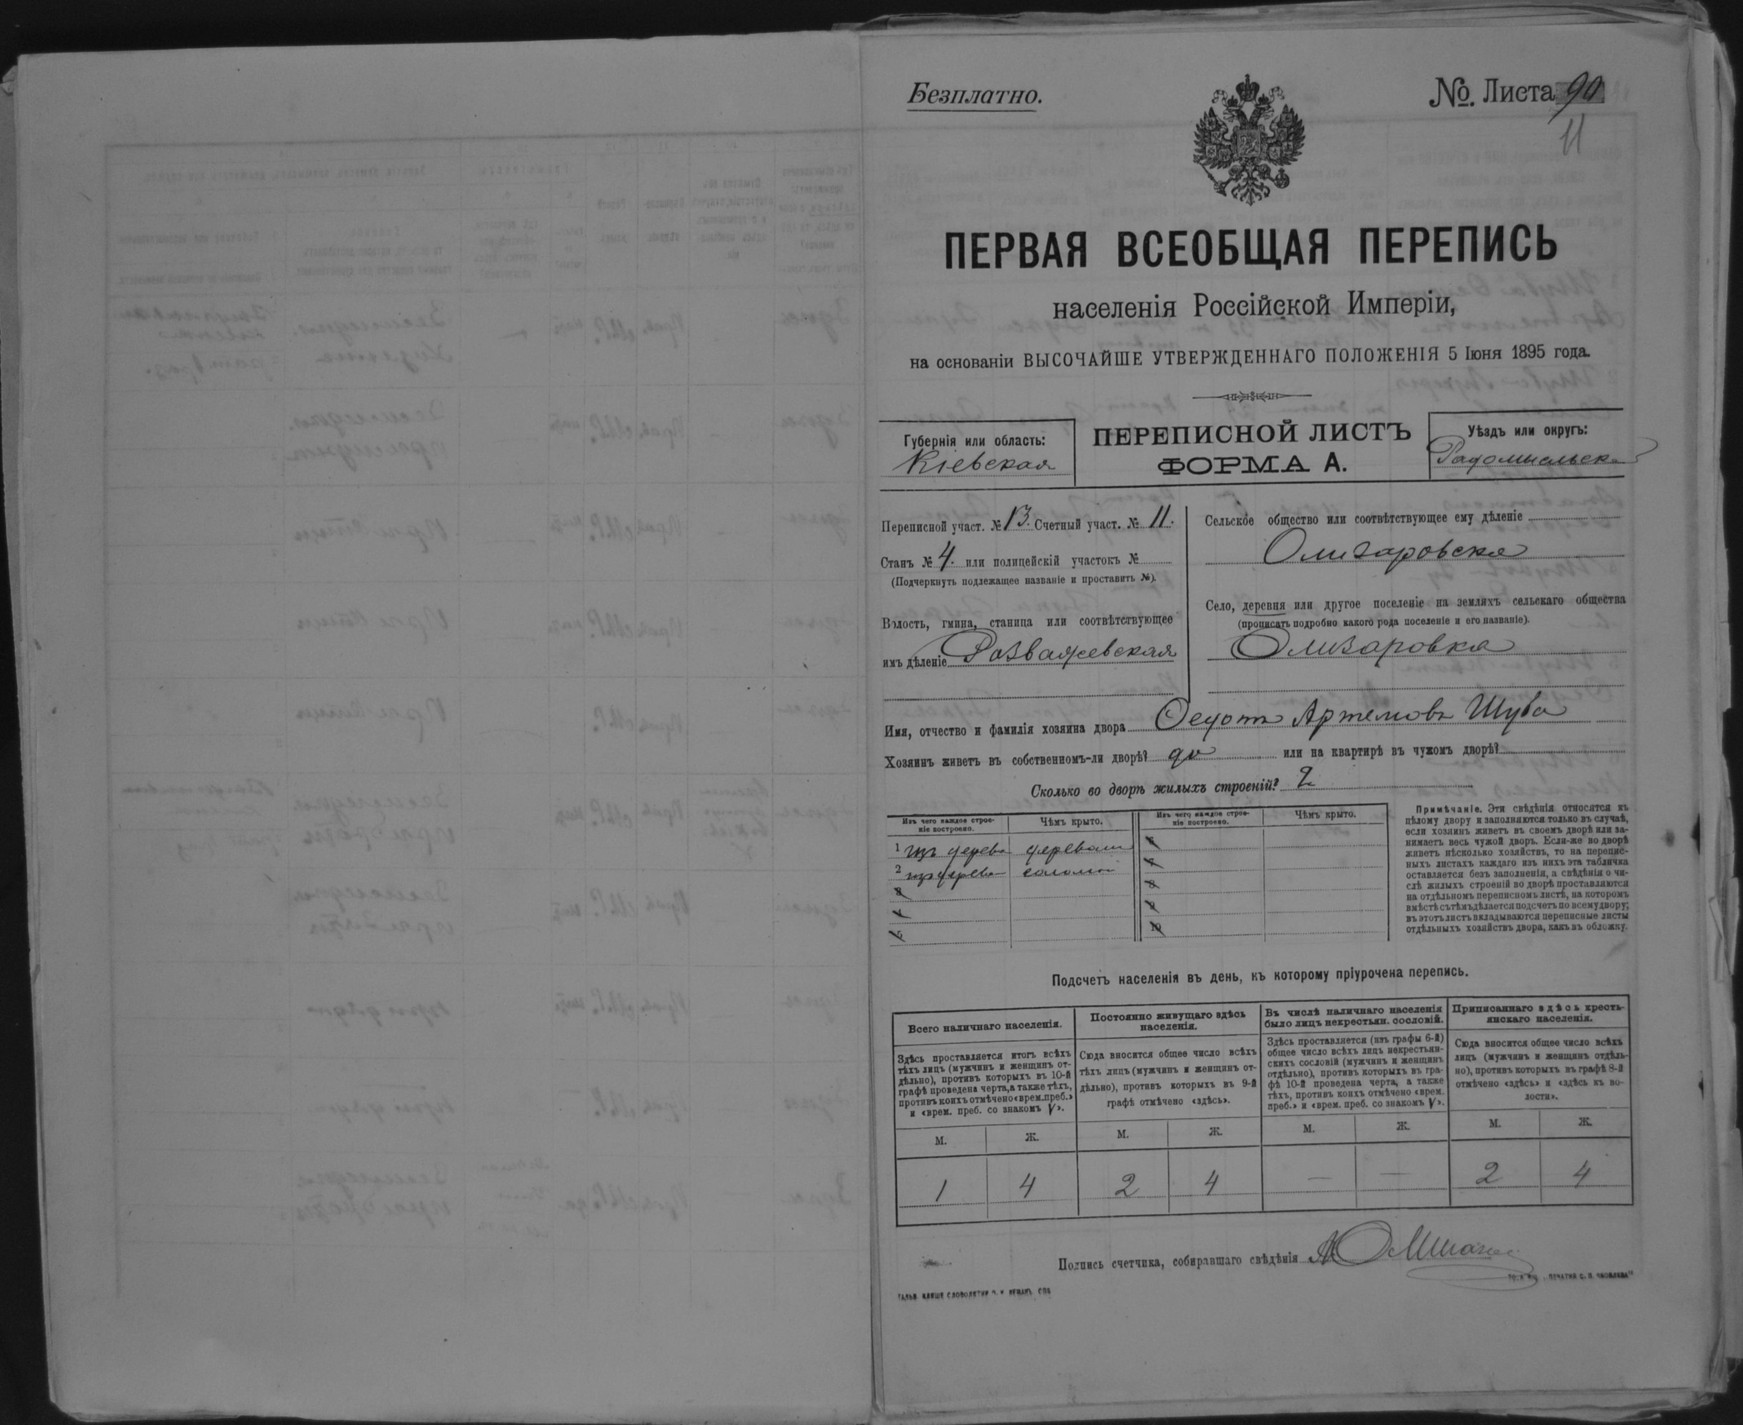 Безплатно.
№. Листа 90
11
ПЕРВАЯ ВСЕОБЩАЯ ПЕРЕПИСЬ
населенія Россійской Имперіи,
на основаніи ВЫСОЧАЙШЕ УТВЕРЖДЕННАГО ПОЛОЖЕНІЯ 5 Іюня 1895 года.
Губернія или область:
Кіевская
ПЕРЕПИСНОЙ ЛИСТЪ
ФОРМА А.
Уѣздъ или округъ:
Радомысльск
Переписной участ. № 13. Счетный участ. № 11.
Станъ № 4. или полицейскій участокъ №
(Подчеркнуть подлежащее названіе и проставить №).
Волость, гмина, станица или соотвѣтствующее
имъ дѣленіе Розважевская
Сельское общество или соотвѣтствующее ему дѣленіе
Олизаровска
Село, деревня или другое поселеніе на земляхъ сельскаго общества
(прописать подробно какого рода поселеніе и его названіе).
Олизаровка
Имя, отчество и фамилія хозяина двора Федотъ Артемовъ Шуба
Хозяинъ живетъ въ собственномъ-ли дворѣ? да или на квартирѣ въ чужомъ дворѣ?
Сколько во дворѣ жилыхъ строеній? 2
Изъ чего каждое строе-
ніе построено.
Чѣмъ крыто.
Изъ чего каждое строе-
ніе построено.
Чѣмъ крыто.
1 изъ дерева деревом
2 изъ дерева солома
3
4
5
6
7
8
9
10
Примѣчаніе. Эти свѣдѣнія относятся къ
цѣлому двору и заполняются только въ случаѣ,
если хозяинъ живетъ въ своемъ дворѣ или за-
нимаетъ весь чужой дворъ. Если-же во дворѣ
живетъ нѣсколько хозяйствъ, то на перепис-
ныхъ листахъ каждаго изъ нихъ эта табличка
оставляется безъ заполненія, а свѣдѣнія о чи-
слѣ жилыхъ строеній во дворѣ проставляются
на отдѣльномъ переписномъ листѣ, на которомъ
вмѣстѣ съ тѣмъ дѣлается подсчетъ по всему двору;
въ этотъ листъ вкладываются переписные листы
отдѣльныхъ хозяйствъ двора, какъ въ обложку.
Подсчетъ населенія въ день, къ которому пріурочена перепись.
Всего наличнаго населенія.
Здѣсь проставляется итогъ всѣхъ
тѣхъ лицъ (мужчинъ и женщинъ от-
дѣльно), противъ которыхъ въ 10-й
графѣ проведена черта, а также тѣхъ,
противъ коихъ отмѣчено «врем. преб.»
и «врем. преб. со знакомъ V».
Постоянно живущаго здѣсь
населенія.
Сюда вносится общее число всѣхъ
тѣхъ лицъ (мужчинъ и женщинъ от-
дѣльно), противъ которыхъ въ 9-й
графѣ отмѣчено «здѣсь».
Въ числѣ наличнаго населенія
было лицъ некрестьян. сословій.
Здѣсь проставляется (изъ графы 6-й)
общее число всѣхъ лицъ некрестьян-
скихъ сословій (мужчинъ и женщинъ
отдѣльно), противъ которыхъ въ гра-
фѣ 10-й проведена черта, а также
тѣхъ, противъ коихъ отмѣчено «врем.
преб.» и «врем. преб. со знакомъ V».
Приписаннаго здѣсь кресть-
янскаго населенія.
Сюда вносится общее число всѣхъ
лицъ (мужчинъ и женщинъ отдѣль-
но), противъ которыхъ въ графѣ 8-й
отмѣчено «здѣсь» и «здѣсь къ во-
лости».
М. Ж. М. Ж. М. Ж. М. Ж.
1 4 2 4 — — 2 4
Подпись счетчика, собиравшаго свѣдѣнія